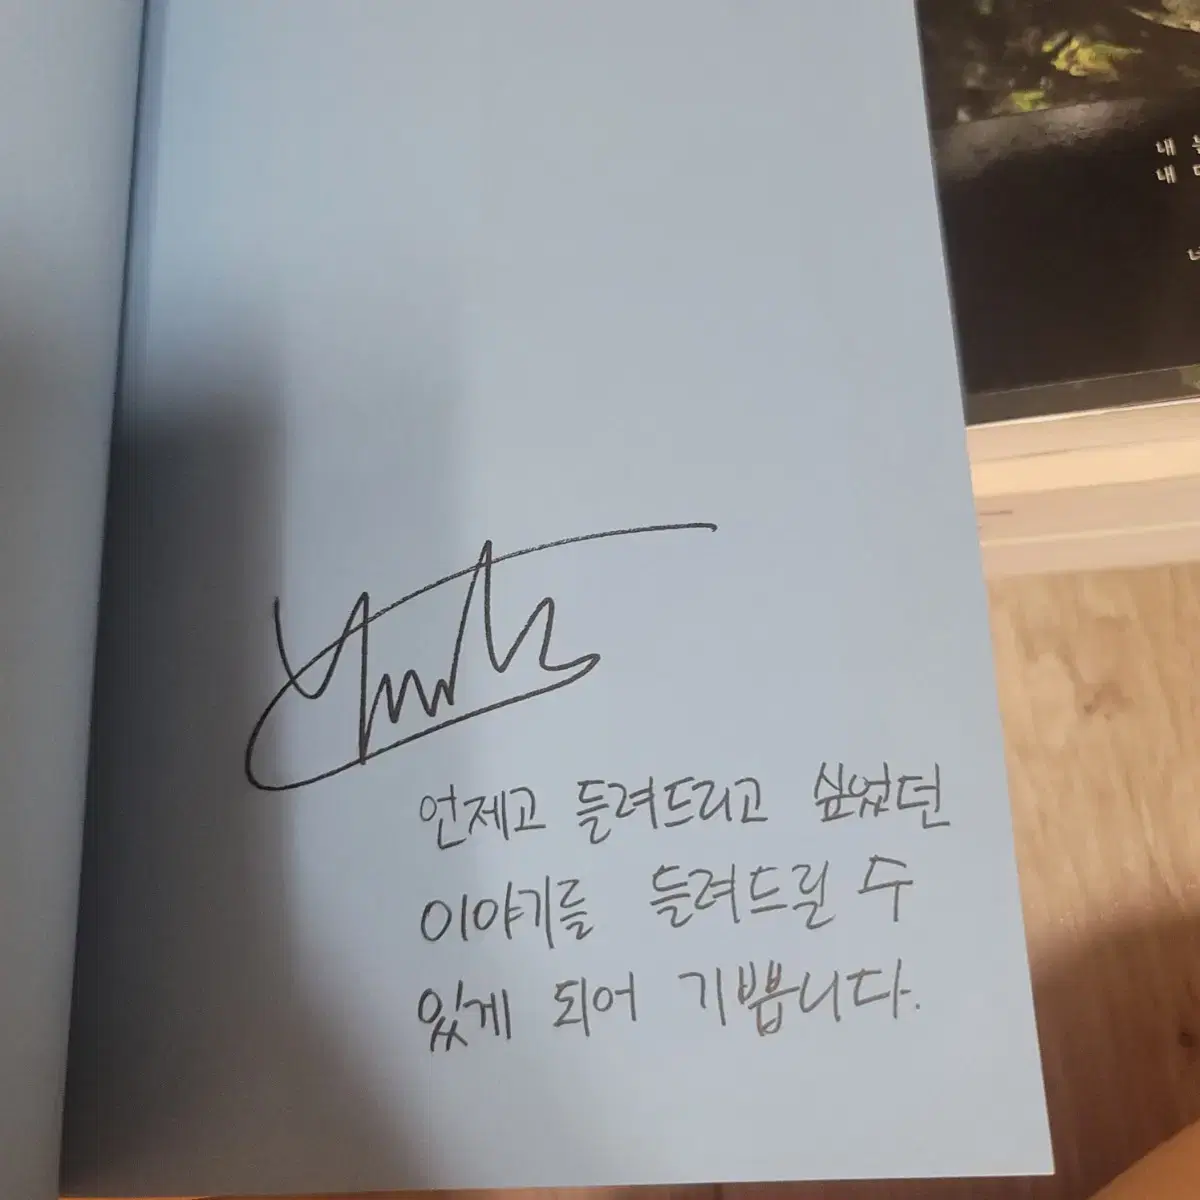 언제고 들려드리고 싶었던
이야기를 들려드릴 수
있게 되어 기쁩니다.
내
내